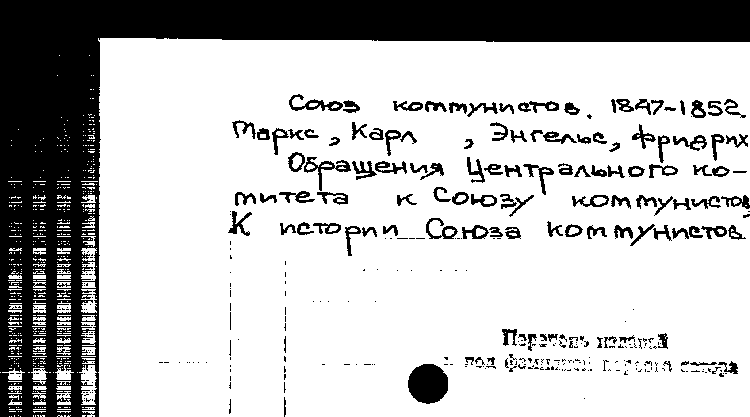 Союз коммунистов. 1847-1852.
Маркс, Карл , Энгельс, Фридрих
Обращения Центрального ко-
митета к Союзу коммунистов
К истории Союза коммунистов
Перечень изданий
под фамилией первого автора